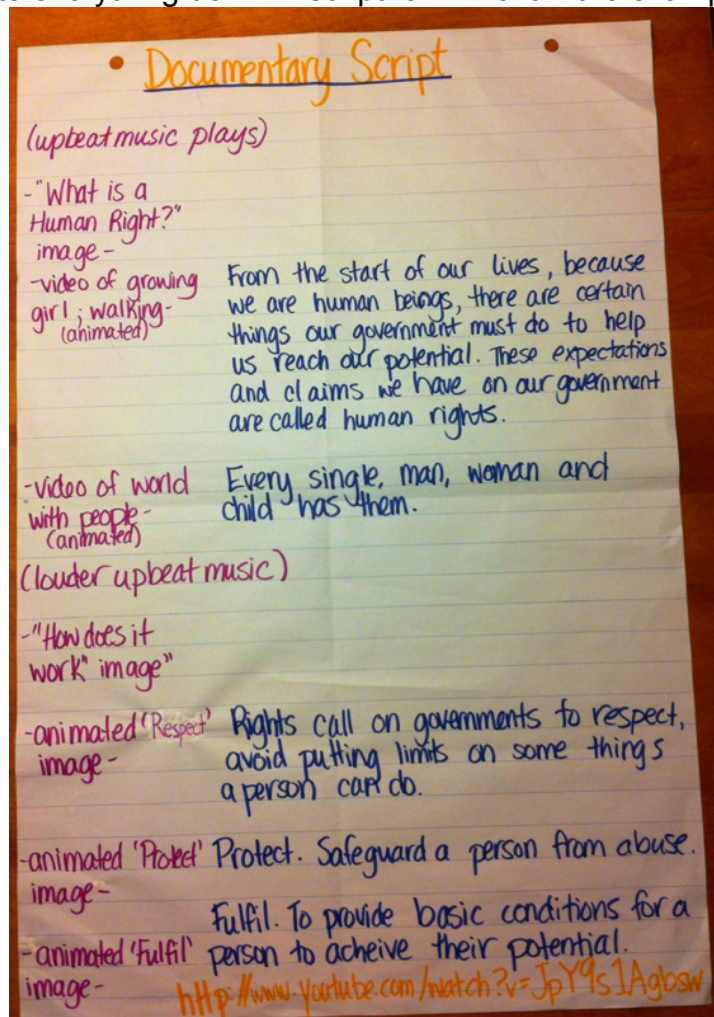 Documentary Script
(upbeat music plays)
-"What is a
Human Right?"
image-
-video of growing
girl; walking-
(animated)
From the start of our lives, because
we are human beings, there are certain
things our government must do to help
us reach our potential. These expectations
and claims we have on our government
are called human rights.
-video of world
with people-
(animated)
Every single, man, woman and
child has them.
(louder upbeat music)
-"How does it
work" image"
-animated 'Respect'
image-
Rights call on governments to respect,
avoid putting limits on some things
a person can do.
-animated 'Protect'
image-
Protect. Safeguard a person from abuse.
-animated 'Fulfil'
image-
Fulfil. To provide basic conditions for a
person to acheive their potential.
http://www.youtube.com/watch?v=JpY9s1Agbsw